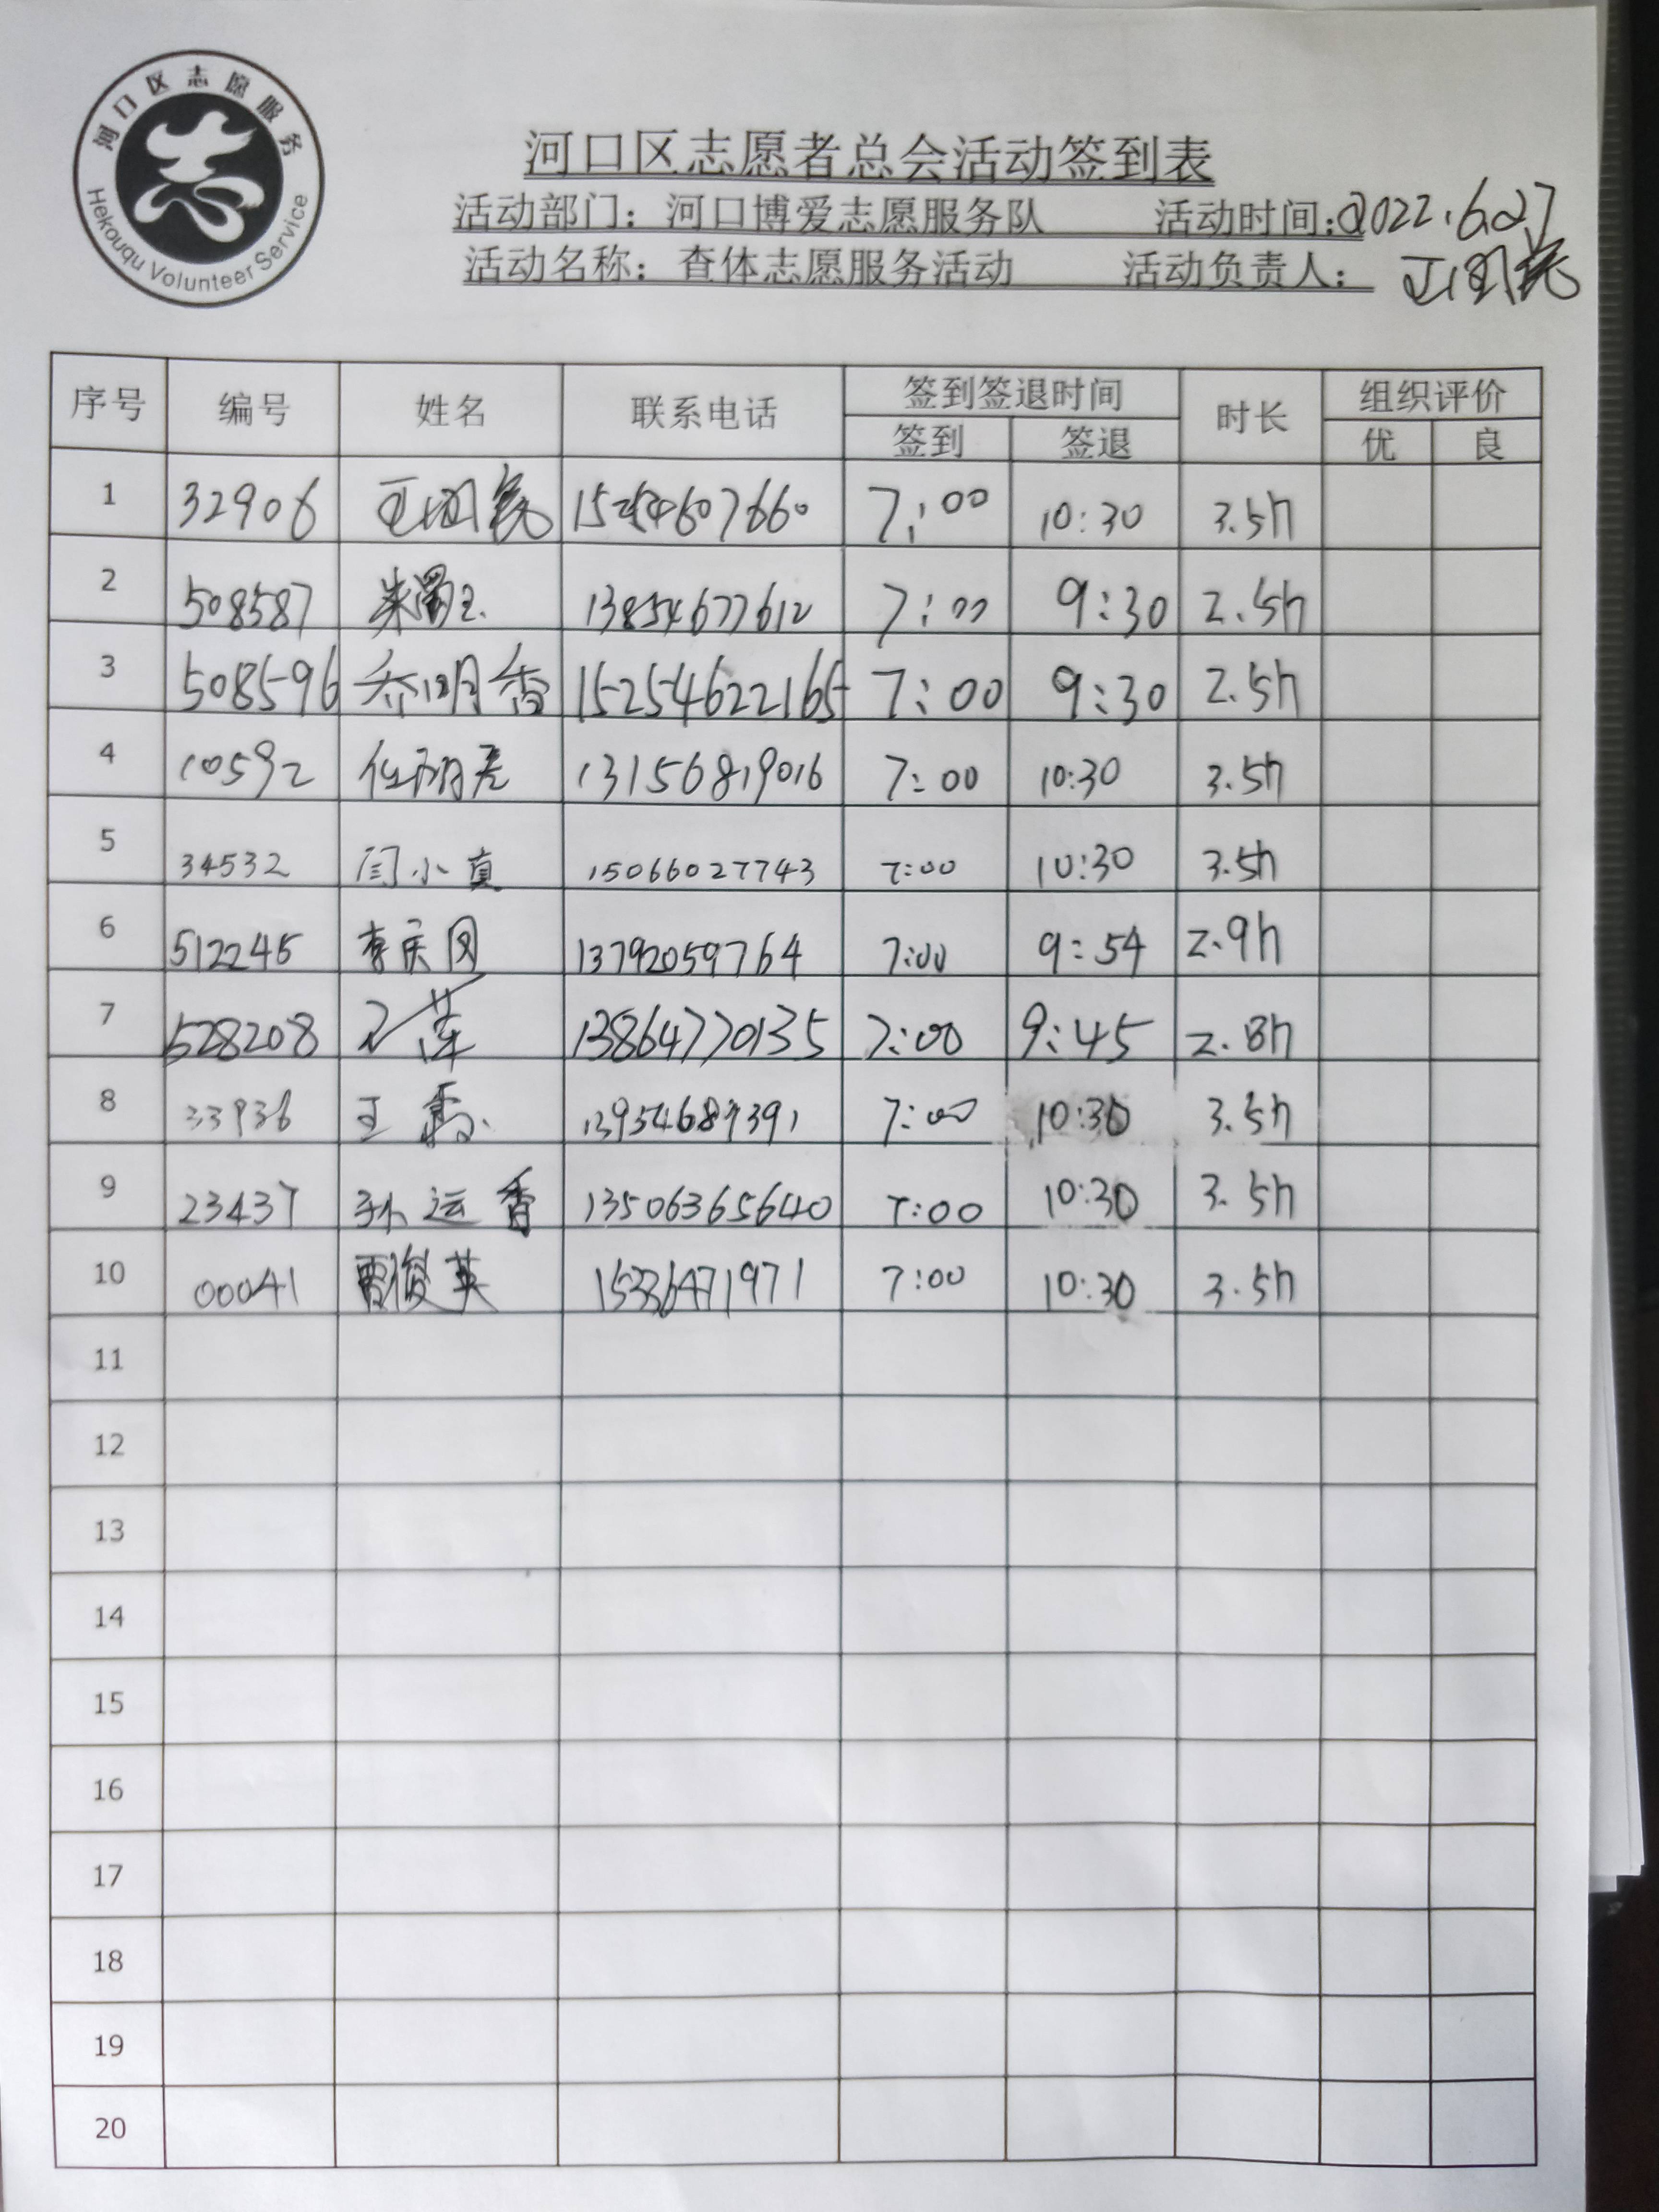 河口区志愿服务
Hekouqu Volunteer Service
河口区志愿者总会活动签到表
活动部门：河口博爱志愿服务队 活动时间:2022.6.27
活动名称：查体志愿服务活动 活动负责人：
序号 编号 姓名 联系电话 签到签退时间 时长 组织评价
签到 签退 优 良
1 32906 15254607660 7:00 10:30 3.5h
2 508587 13854677612 7:00 9:30 2.5h
3 508596 乔明香 15254622165 7:00 9:30 2.5h
4 10592 13156819016 7:00 10:30 3.5h
5 34532 闫小真 15066027743 7:00 10:30 3.5h
6 512245 13792059764 7:00 9:54 2.9h
7 528208 13864770135 7:00 9:45 2.8h
8 33936 王 7:00 10:30 3.5h
9 23437 孙运香 13506365640 7:00 10:30 3.5h
10 00041 贾俊英 15336471971 7:00 10:30 3.5h
11
12
13
14
15
16
17
18
19
20